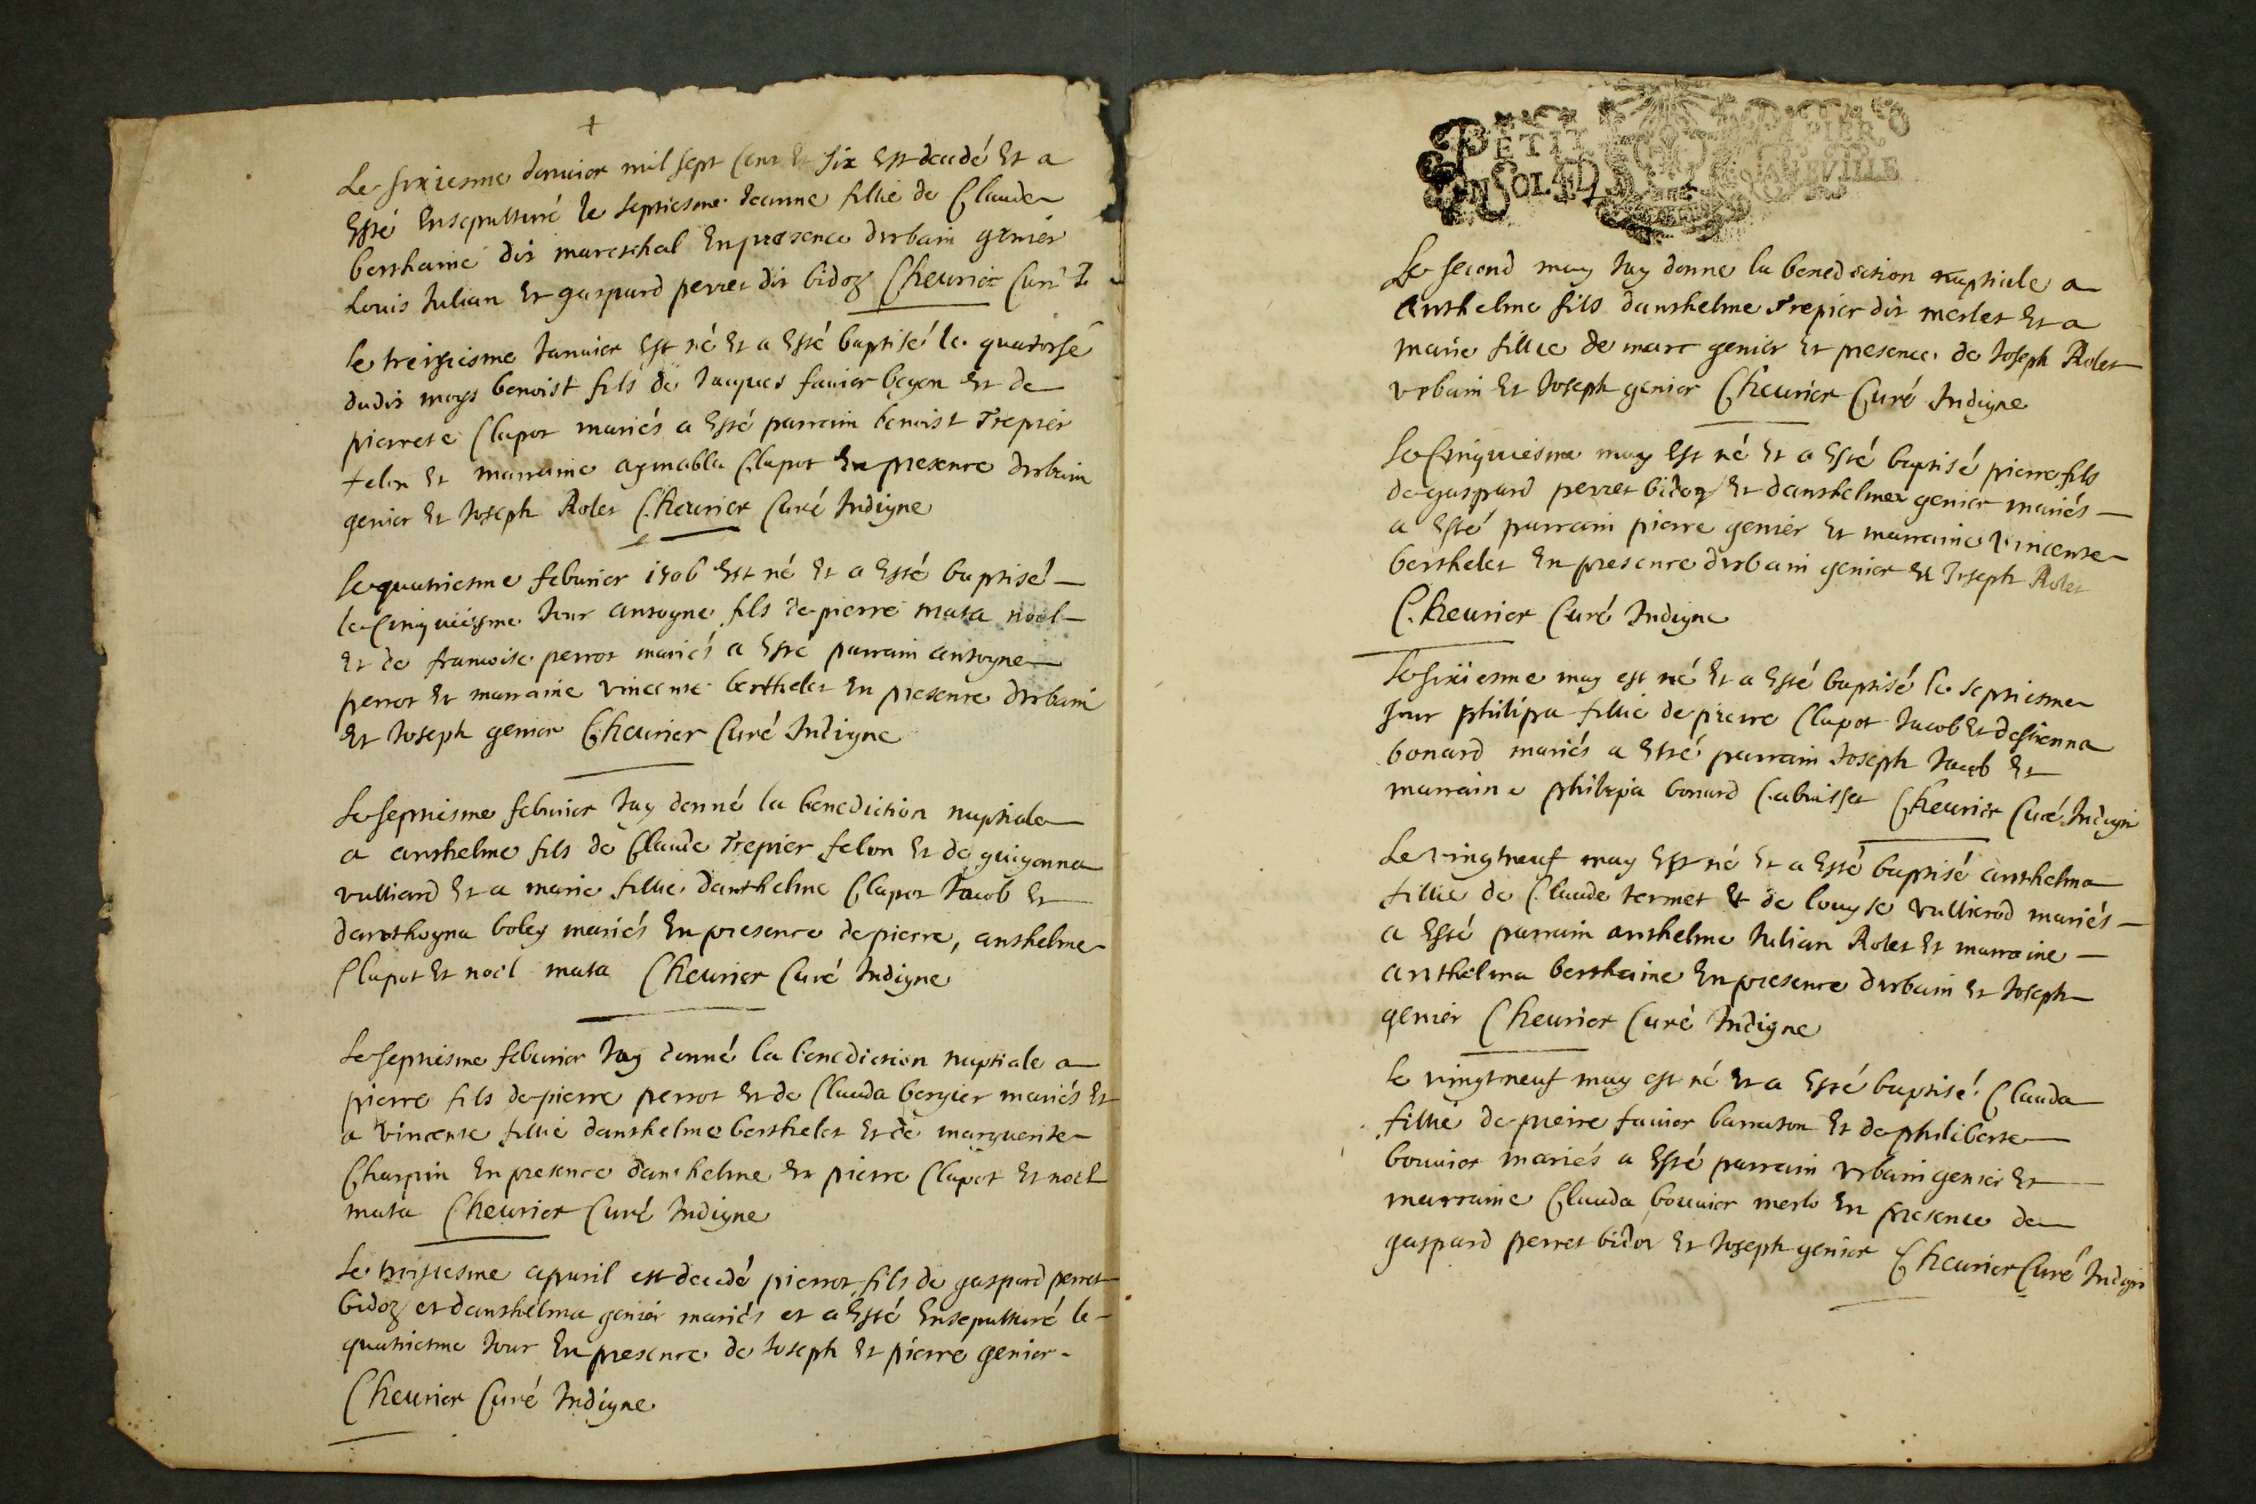 +
Le sixiesme Janvier mil sept cent et six est decedé et a
Esté Ensepulturé le septiesme Jeanne fillie de Claude
berthaine dit mareschal En presence durbain genier
Louis Julian et gaspard perret dit bidoz Cheurier Curé I
le treiziesme Janvier est né et a Esté baptisé le quatorse
dudit moys benoist fils de Jaques favier begon et de
pierrete Clapot mariés a Esté parrain benoist Trepier
felon et marraine aymabla Clapot En presence durbain
genier et Joseph Rolet Cheurier Curé Indigne
le quatriesme feburier 1706 est né et a Esté baptisé
le Cinquiesme Jour antoyne fils de pierre mata noel
et de francoise perrot mariés a Esté parrain antoyne
perrot et marraine vincente berthelet En presence durbain
et Joseph genier Cheurier Curé Indigne
Le septiesme feburier Jay donné la benediction nuptiale
a anthelme fils de Claude Trepier felon et de guigonna
vulliard et a marie fillie danthelme Clapot Jacob et
danthoyna boley mariés En presence de pierre, anthelme
Clapot et noel mata Cheurier Curé Indigne
Le septiesme feburier Jay donné la benediction nuptiale a
pierre fils de pierre perrot et de Clauda bergier mariés et
a vincente fillie danthelme berthelet et de marguerite
Charpin En presence danthelme et pierre Clapot et noel
mata Cheurier Curé Indigne
Le troisiesme apuril est decedé pierrot fils de gaspard perret
bidoz et danthelma genier mariés et a Esté Ensepulturé le
quatriesme Jour En presence de Joseph et pierre genier.
Cheurier Curé Indigne
PETIT PAPIER
UN SOL 4 D LA FEVILLE
Le second may Jay donne la benediction nuptiale a
Anthelme fils danthelme Trepier dit merlet et a
marie fillie de marc genier et presence de Joseph Rolet
vrbain et Joseph genier Cheurier Curé Indigne
Le Cinquiesme may est né et a Esté baptisé pierre fils
de gaspard perret bidoz et danthelmaz genier mariés
a Esté parrain pierre genier et marraine vincente
berthelet En presence durbain genier et Joseph Rolet
Cheurier Curé Indigne
Le sixiesme may est né et a Esté baptisé le septiesme
Jour philipa fillie de pierre Clapot Jacob et destienna
bonard mariés a Esté parrain Joseph Jacob et
marraine philipa bonard Cheurier Curé Indigne
Le vingtneuf may est né et a Esté baptisé anthelma
fillie de Claude termet et de louyse vullierod mariés
a Esté parrain anthelme Julian Rolet et marraine
anthelma berthaine En presence durbain et Joseph
genier Cheurier Curé Indigne
Le vingtneuf may est né et a Esté baptisé Clauda
fillie de pierre favier barraton et de philiberte
bouvier mariés a Esté parrain vrbain genier et
marraine Clauda bouvier merlo En presence de
gaspard perret bidoz et Joseph genier Cheurier Curé Indigne